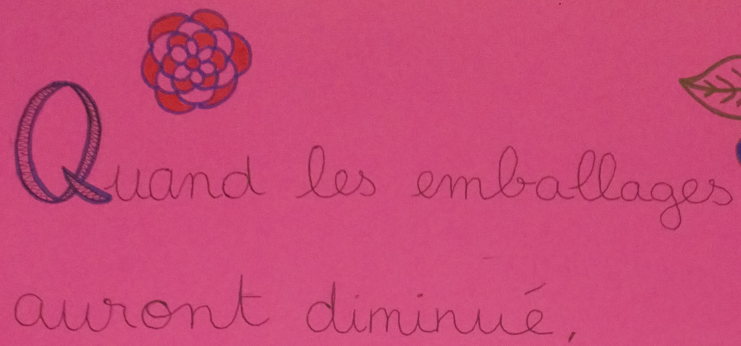 Quand les emballages
auront diminué,